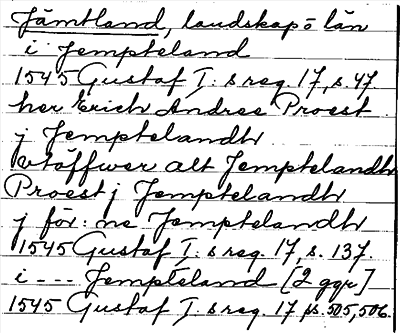 Jämtland, landskap o län
i Jempteland
1545 Gustaf I:s reg. 17, s. 47
her Erich Andree Proest
j Jemptelandh
vtöffwer alt Jemptelandh
Proest j Jemptelandh
j för: ne Jemptelandh
1545 Gustaf I:s reg. 17, s. 137.
i --- Jempteland [2 ggr]
1545 Gustaf I:s reg. 17 ss. 505, 506.